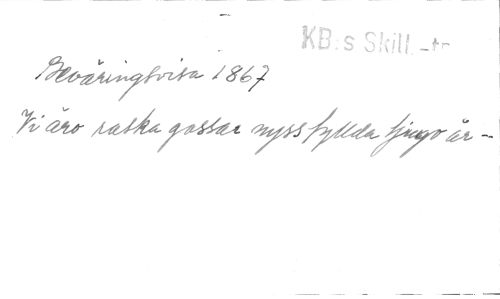 KB:s Skill.-tr
Beväringsvisa 1867
Vi äro raska gossar nyss fyllda tjugo år –